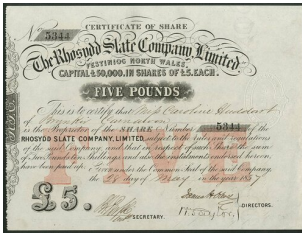 CERTIFICATE OF SHARE
No 5344
The Rhosydd Slate Company, Limited
FESTINIOG NORTH WALES,
CAPITAL £50,000. IN SHARES OF £5. EACH.
FIVE POUNDS
This is to Certify that Caroline
of
is the Proprietor of the SHARE Number 5344 of the
RHOSYDD SLATE COMPANY, LIMITED, subject to the rules and regulations
of the said Company, and that in respect of such Share the sum
of Two Pounds Ten Shillings and also the instalments endorsed hereon,
have been paid up. Given under the Common Seal of the said Company,
the 28 day of May in the year 1857
£5.
SECRETARY.
DIRECTORS.